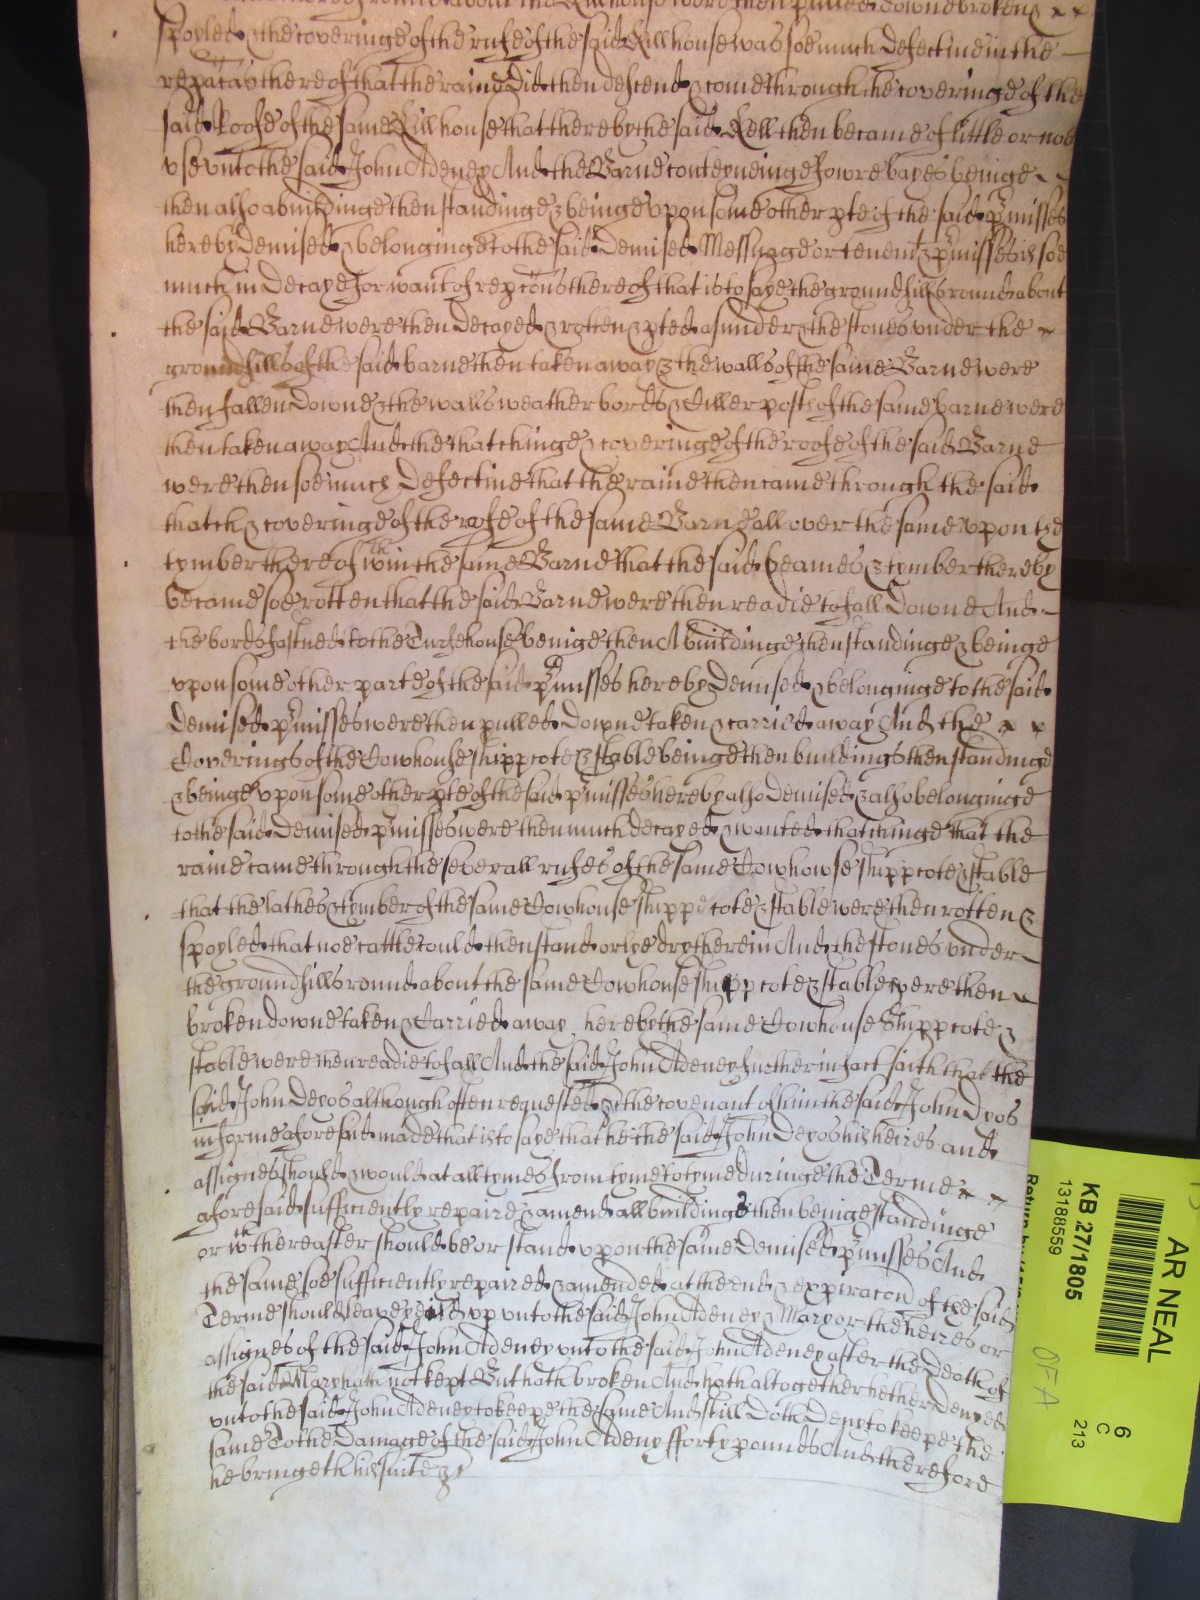 about the Killhouse were then pulled downe broken &
spoyled & the coveringe of the rufe of the said Killhouse was soe much defective in the
repacõns thereof that the raine did then descend & come through the coveringe of the
said Roofe of the same Killhouse that thereby the said Kell then became of little or noe
use unto the said John Adeney And the Barne conteyneinge fowre bayes beinge
then also a buildinge then standinge & beinge upon some other pte of the said pmisses
hereby demised & belonginge to the said demised Messuage or tenemt & pmisses is soe
much in decaye for want of repacõns thereof that is to saye the groundsills round about
the said Barne were then decayed & rotten & pted asunder & the stones under the
groundsills of the said barne then taken away & the walls of the same Barne were
then fallen downe & the walls weatherbords & Tiller posts of the same barne were
then taken away And the thatchinge & coveringe of the roofe of the said Barne
were then soe much defective that the raine then came through the said
thatch & coveringe of the rofe of the same Barne all over the same upon the
tymber thereof wthin the same Barne that the said beames & tymber thereby
became soe rotten that the said Barne were then readie to fall downe And
the bords fastned to the Turfehouse beinge then A buildinge then standinge & beinge
upon some other parte of the said pmisses hereby demised & belonginge to the said
demised pmisses were then pulled downe taken & carried away And the
Coverings of the Cowhouse shippcote & stable beinge then buildings then standinge
& beinge upon some other pte of the said pmisses hereby also demised & also belonginge
to the said demised pmisses were then much decayed & wanted thatchinge that the
raine came through the severall rufes of the same Cowhowse shippcote & stable
that the lathes & tymber of the same Cowhouse shippcote & stable were then rotten &
spoyled that noe cattle could then stand or lye dry therein And the stones under
the groundsills round about the same Cowhouse shippcote & stable were then
broken downe taken & Carried away hereby the same Cowhouse Shippcote &
stable were then readie to fall And the said John Adeney further in fact saith that the
said John Deyos although often requested & the covenant of him the said John Dyos
in forme aforesaid made that is to saye that he the said John Deyos his heires and
assignes should & would at all tymes from tyme to tyme duringe the Terme
aforesaid sufficiently repaire & amend all buildings then beinge standinge
or wth thereafter should be or stand upon the same demised pmisses And
the same soe sufficiently repaired & amended at the end & expiracon of the said
Terme should leave yeild up unto the said John Adeney & Mary or the heires or
assignes of the said John Adeney unto the said John Adeney after the death of
the said Mary hath not kept But hath broken And hath altogether hether denyed
unto the said John Adeney to keepe the same And still doth deny to keepe the
same To the Damage of the said John Adeny fforty pounds And therefore
he bringeth his suite &c
AR NEAL
6
C
213
KB 27/1805
13188559